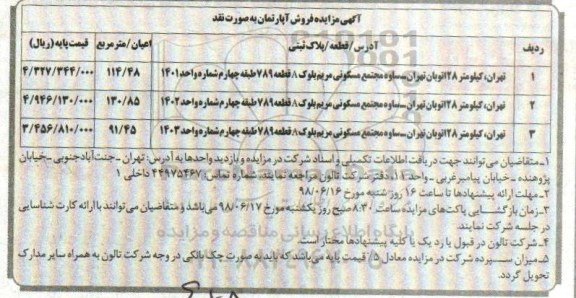 آگهی مزایده فروش آپارتمان به صورت نقد
ردیف آدرس/ قطعه/ پلاک ثبتی اعیان/ مترمربع قیمت پایه (ریال)
۱ تهران، کیلومتر ۲۸ اتوبان تهران ـ ساوه مجتمع مسکونی مریم بلوک ۸ قطعه ۷۸۹ طبقه چهارم شماره واحد ۱۴۰۱ ۱۱۴/۴۸ ۴/۳۲۷/۳۴۴/۰۰۰
۲ تهران، کیلومتر ۲۸ اتوبان تهران ـ ساوه مجتمع مسکونی مریم بلوک ۸ قطعه ۷۸۹ طبقه چهارم شماره واحد ۱۴۰۲ ۱۳۰/۸۵ ۴/۹۴۶/۱۳۰/۰۰۰
۳ تهران، کیلومتر ۲۸ اتوبان تهران ـ ساوه مجتمع مسکونی مریم بلوک ۸ قطعه ۷۸۹ طبقه چهارم شماره واحد ۱۴۰۳ ۹۱/۴۵ ۳/۴۵۶/۸۱۰/۰۰۰
۱ـ متقاضیان می‌توانند جهت دریافت اطلاعات تکمیلی و اسناد شرکت در مزایده و بازدید واحدها به آدرس: تهران ـ جنت‌آباد جنوبی ـ خیابان
پژوهنده ـ خیابان پیامبر غربی ـ واحد ۱۱، دفتر شرکت تالون مراجعه نمایند. شماره تماس: ۴۴۹۷۵۴۶۷ داخلی ۱
۲ـ مهلت ارائه پیشنهادها تا ساعت ۱۶ روز شنبه مورخ ۹۸/۰۶/۱۶
۳ـ زمان بازگشایی پاکت‌های مزایده ساعت ۸:۳۰ صبح روز یکشنبه مورخ ۹۸/۰۶/۱۷ می‌باشد و متقاضیان می‌توانند با ارائه کارت شناسایی
در جلسه شرکت نمایند.
۴ـ شرکت تالون در قبول یا رد یک یا کلیه پیشنهادها مختار است.
۵ـ میزان سپرده شرکت در مزایده معادل ۵٪ قیمت پایه می‌باشد که باید به صورت چک بانکی در وجه شرکت تالون به همراه سایر مدارک
تحویل گردد.